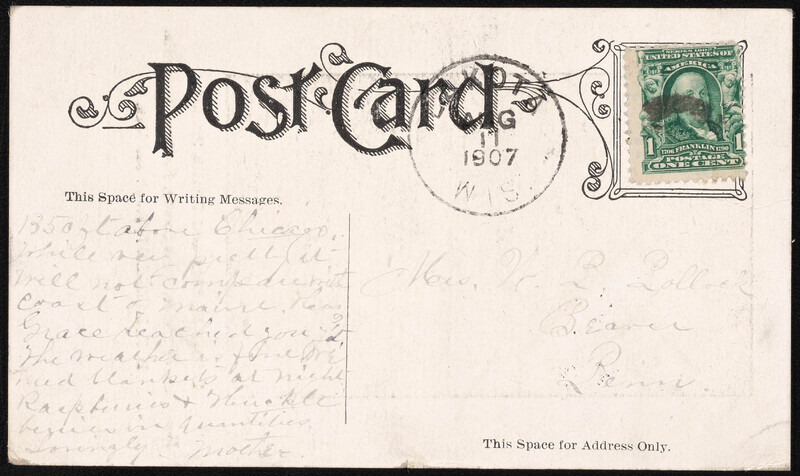 Post Card
AUG
11
1907
WIS
SERIES 1902
UNITED STATES OF
AMERICA
1706 FRANKLIN 1790
1 POSTAGE 1
ONE CENT
This Space for Writing Messages.
1350 ft above Chicago.
While very pretty it
will not compare with
coast of Maine. Has
Grace reached you?
The weather is fine We
need blankets at night
Raspberries & Huckle
berries in quantities.
Lovingly Mother
Mrs. W. L. Pollock
Beaver
Penn.
This Space for Address Only.